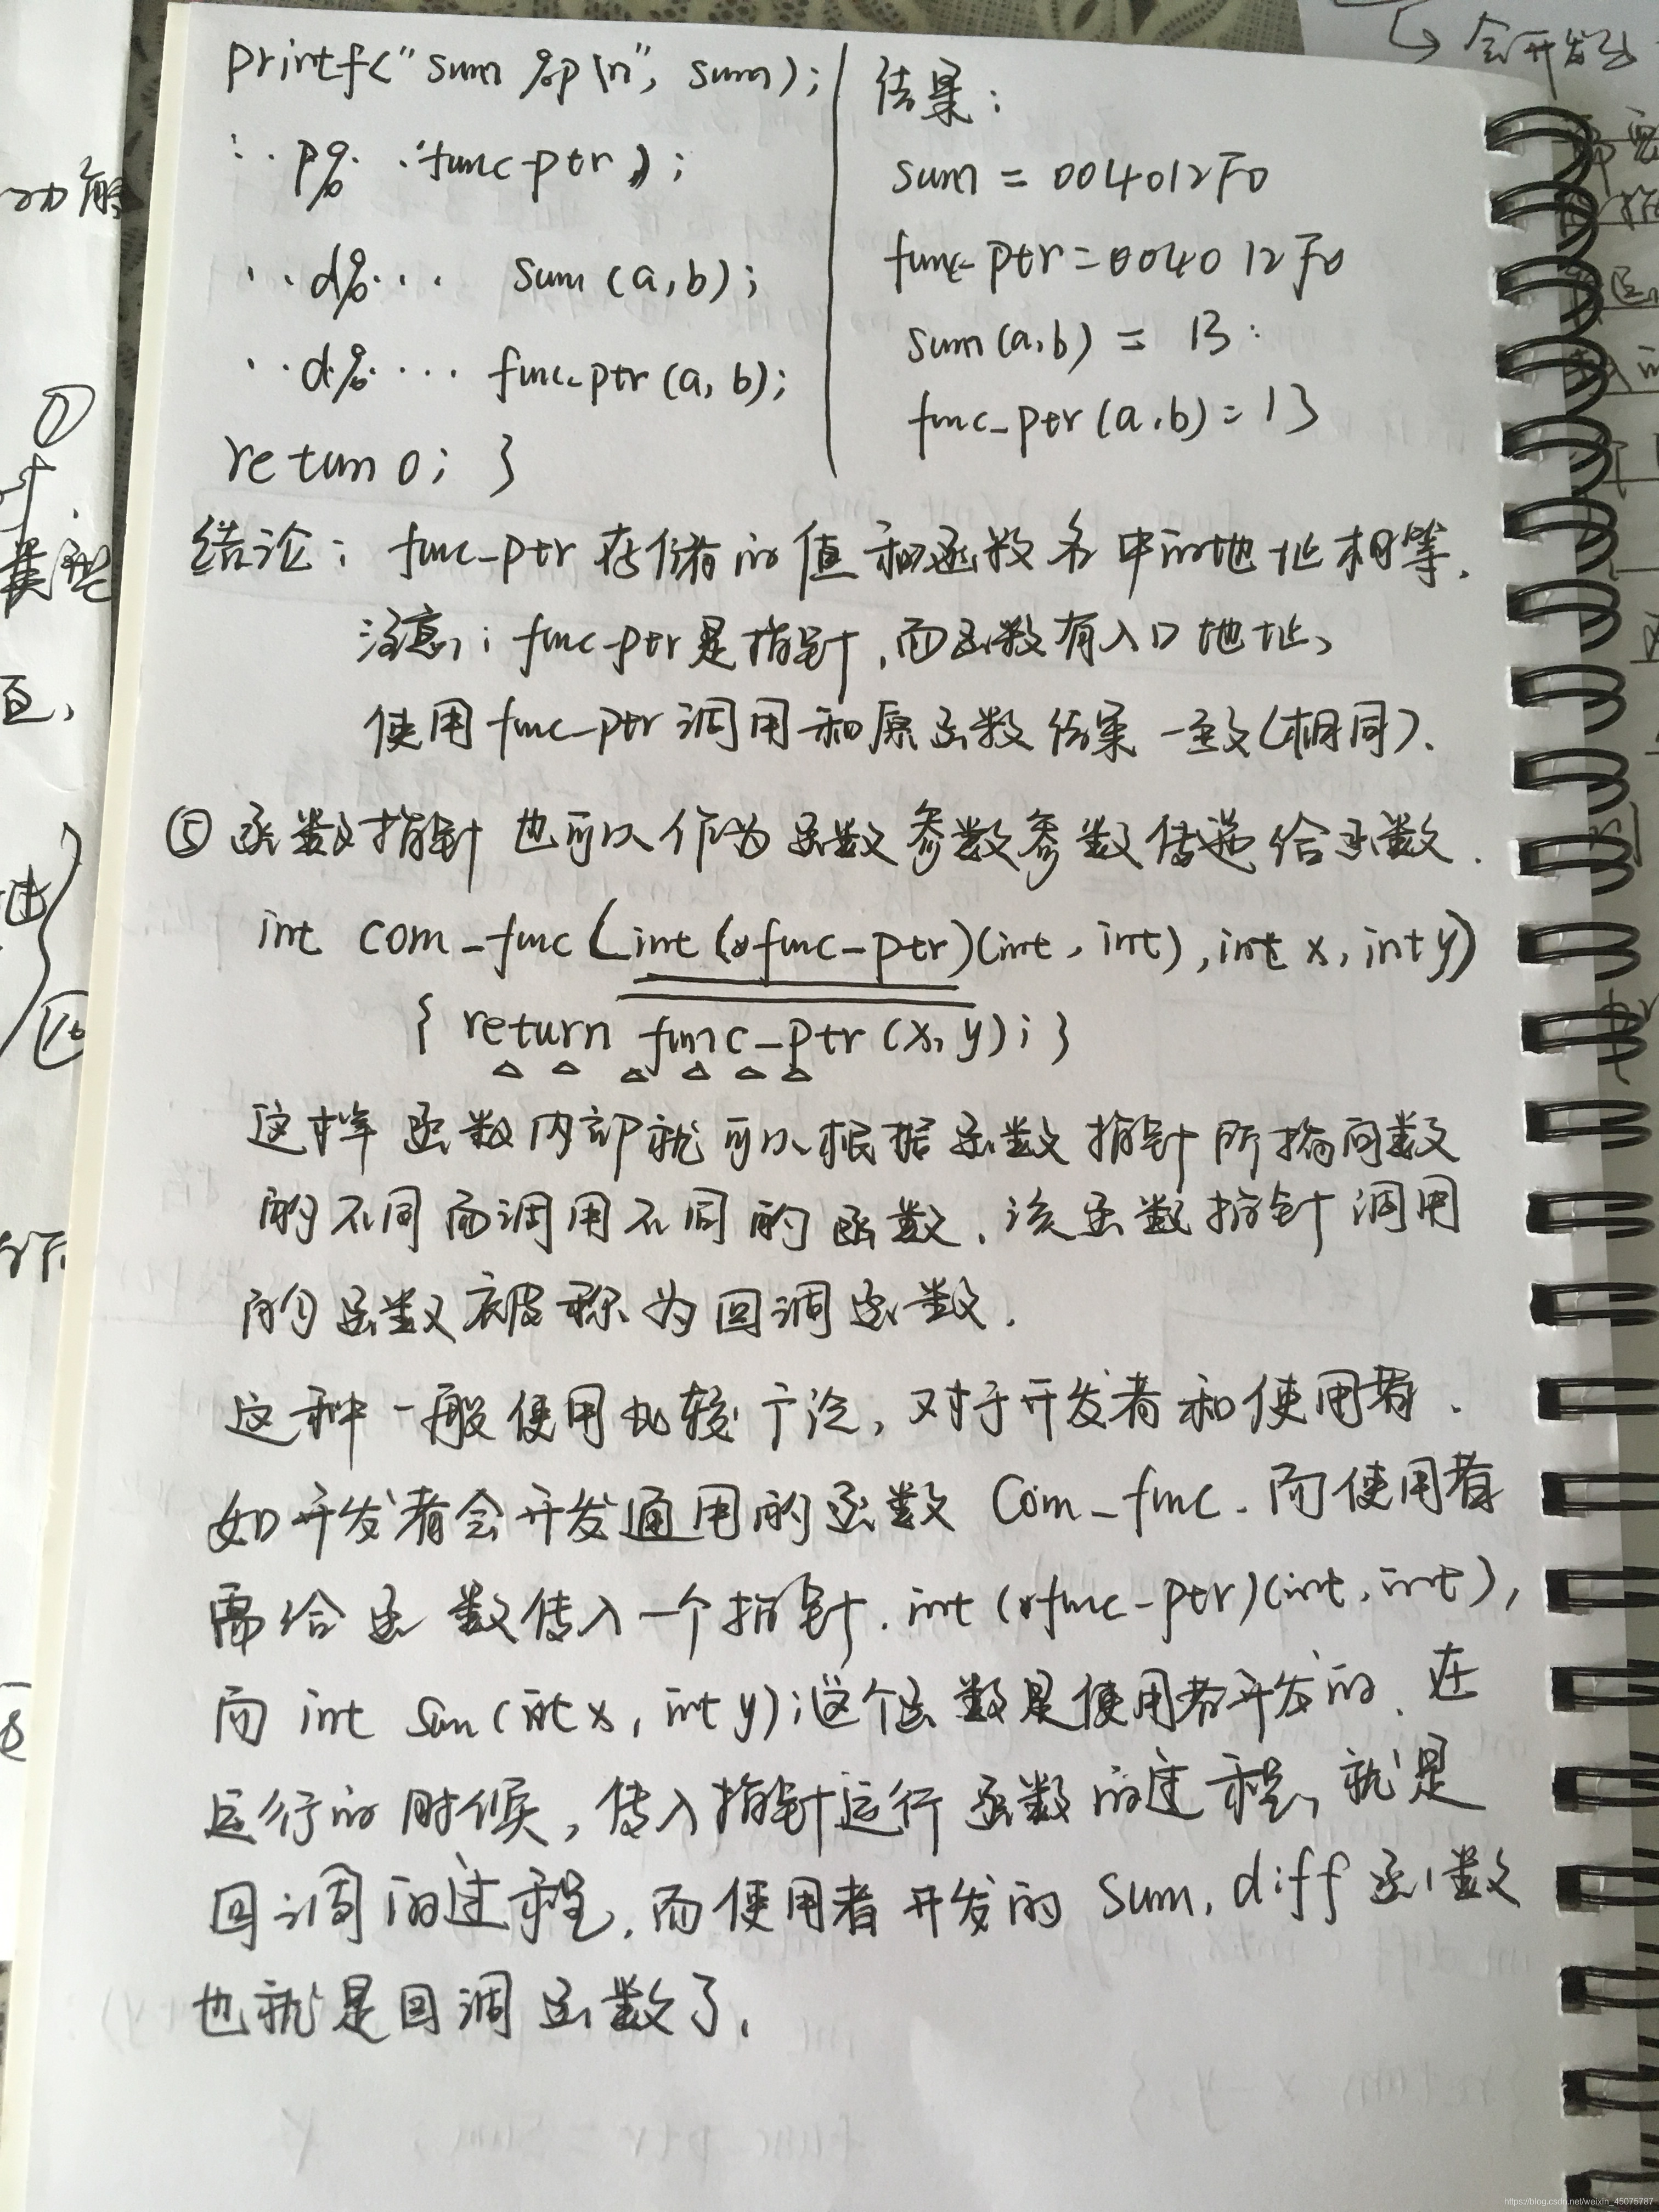 printf("sum %p\n", sum);
·· p% ·· func_ptr);
·· d% ··· sum(a,b);
·· d% ··· func_ptr(a, b);
return 0; }
结果:
sum = 004012F0
func_ptr = 004012F0
sum(a,b) = 13
func_ptr(a,b) = 13
结论: func_ptr 存储的值和函数名中的地址相等.
注意: func_ptr是指针,而函数有入口地址、
使用func_ptr调用和原函数结果一致(相同).
⑤ 函数指针 也可以作为函数参数参数传递给函数.
int com_func (int (*func_ptr)(int, int), int x, int y)
{ return func_ptr (x, y); }
这样函数内部就可以根据函数指针所指向数
的不同而调用不同的函数.该函数指针调用
的函数被称为回调函数.
这种一般使用比较广泛,对于开发者和使用者.
如开发者会开发通用的函数 Com_func.而使用者
需给函数传入一个指针.int (*func_ptr)(int, int),
而 int sum(int x, int y);这个函数是使用者开发的.在
运行的时候,传入指针运行函数的过程,就是
回调的过程.而使用者开发的 Sum, diff 函数
也就是回调函数了.
功能
类型
①
会开发
https://blog.csdn.net/weixin_45075787